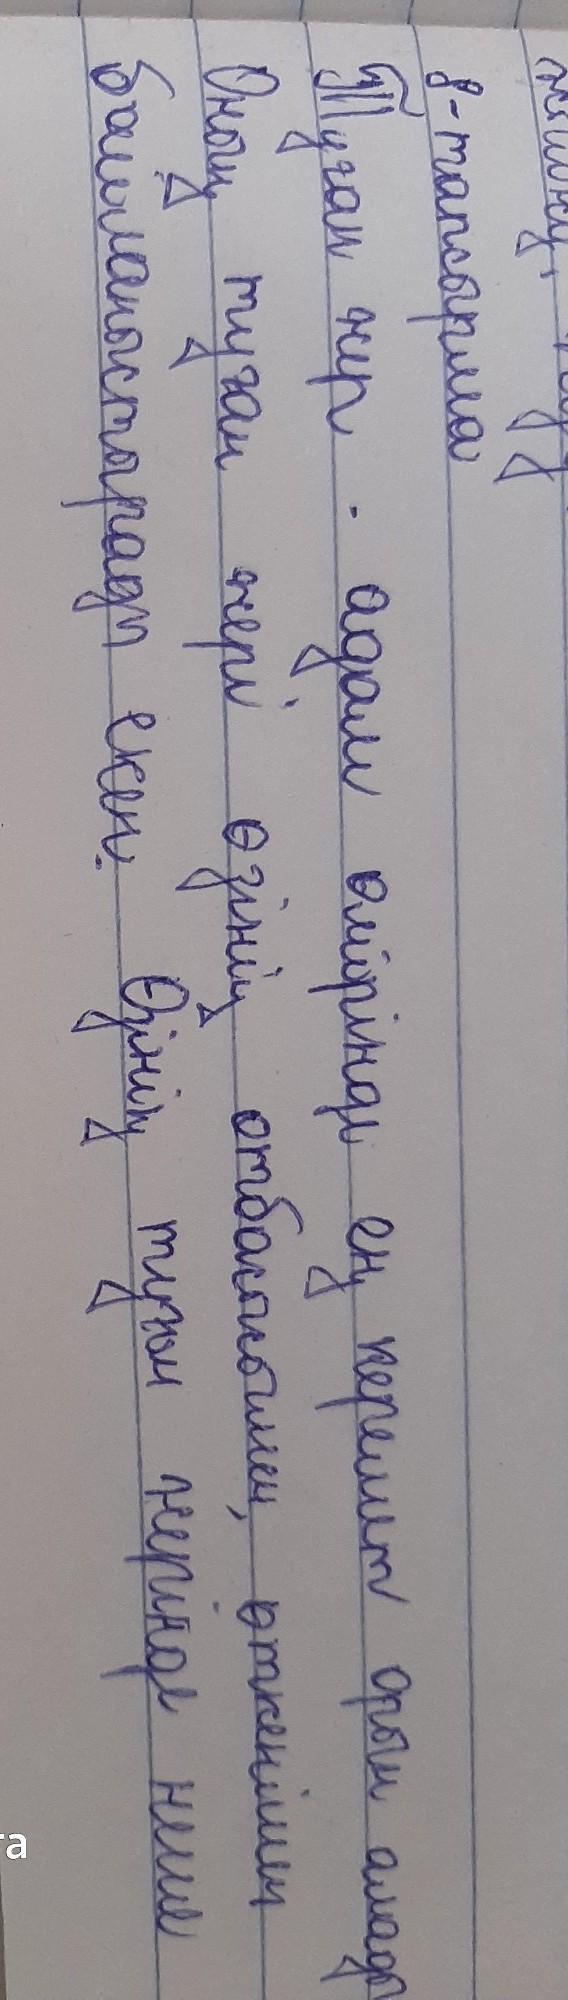 8-тапсырма
Туған жер - адам өмірінде ең керемет орын алады
Оның туған жері өзінің отбасысымен, өткенімен
байланыстырады екен. Өзінің туған жерінде неше
та